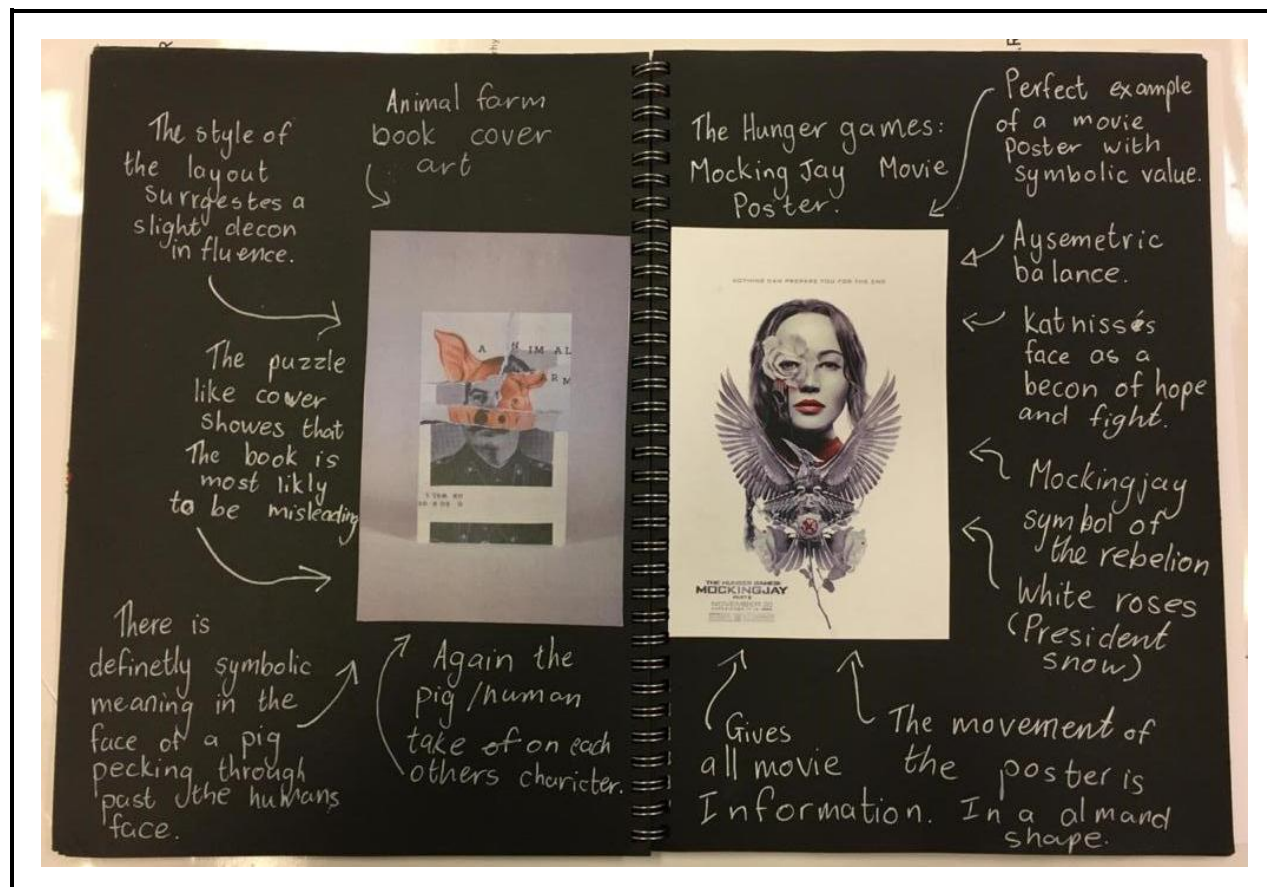 Animal farm
book cover
art
The style of
the layout
surrgestes a
slight decon
influence.
The puzzle
like cover
showes that
The book is
most likly
to be misleading
There is
definetly symbolic
meaning in the
face of a pig
pecking through
past the humans
face.
Again the
pig/human
take of on each
others charicter.
A N IM AL
The Hunger games:
Mocking Jay Movie
Poster.
Perfect example
of a movie
poster with
symbolic value.
Aysemetric
balance.
Katnissés
face as a
becon of hope
and fight.
Mockingjay
symbol of
the rebelion
White roses
(President
snow)
NOTHING CAN PREPARE YOU FOR THE END
THE HUNGER GAMES
MOCKINGJAY
NOVEMBER 20
Gives
all movie
Information.
The movement of
the poster is
In a almand
shape.